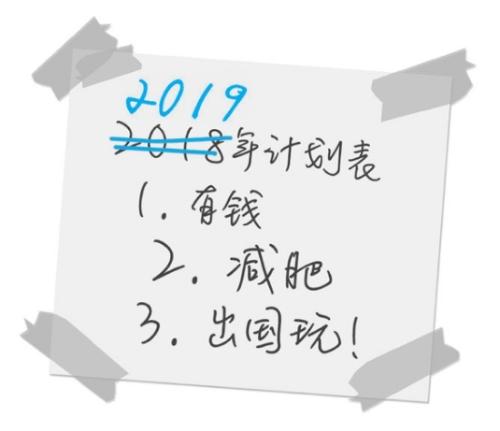 2019
2018年计划表
1. 有钱
2. 减肥
3. 出国玩!